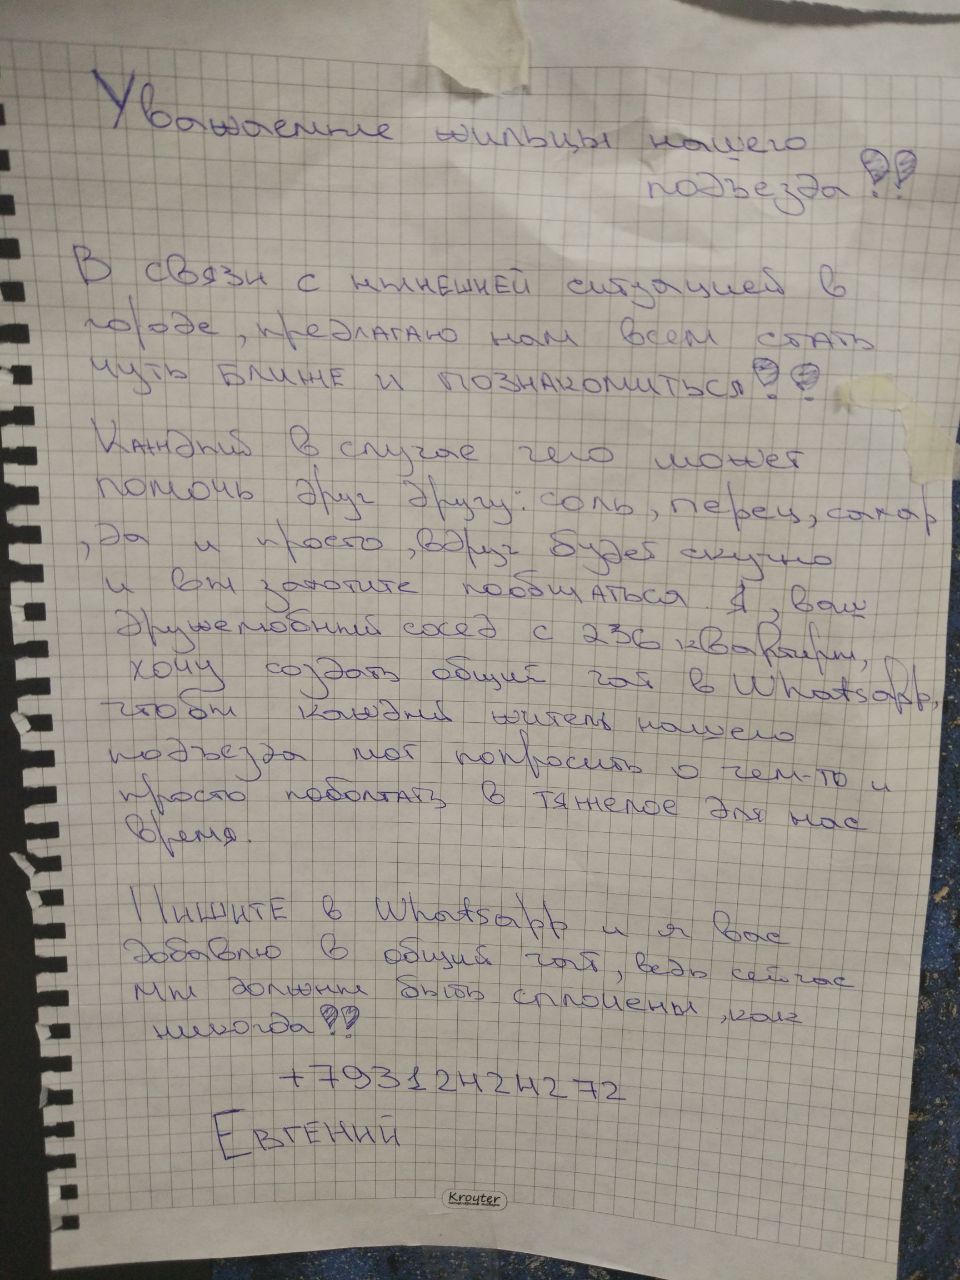 Уважаемые жильцы нашего
подъезда!!
В связи с нынешней ситуацией в
городе, предлагаю нам всем стать
чуть ближе и познакомиться!!
Каждый в случае чего может
помочь друг другу: соль, перец, сахар
, да и просто, вдруг будет скучно
и вы захотите пообщаться. Я, ваш
дружелюбный сосед с 236 квартиры,
хочу создать общий чат в Whatsapp,
чтобы каждый житель нашего
подъезда мог попросить о чем-то и
просто поболтать в тяжелое для нас
время.
Пишите в Whatsapp и я вас
добавлю в общий чат, ведь сейчас
мы должны быть сплочены, как
никогда!!
+79312424272
Евгений
Kroyter